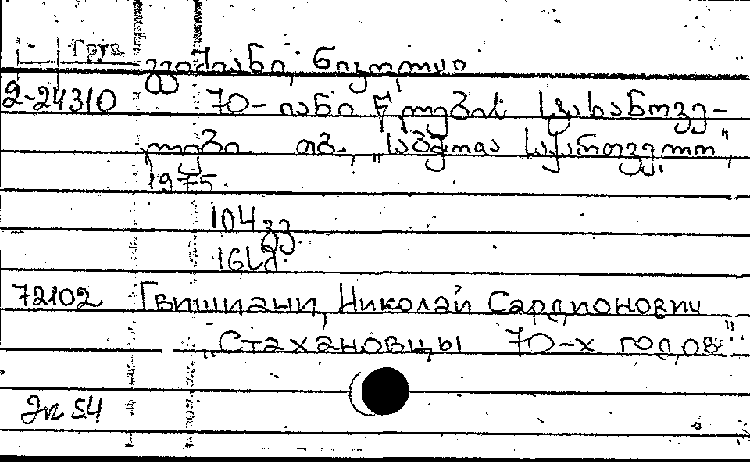 Груз
გვიშიანი, ნიკოლაი
2-24310 70-იანი წლების სტახანოვე-
ლები თბ., „საბჭოთა საქართველო",
1975.
104გვ.
16სმ.
72102 Гвишиани, Николай Сардионович
„Стахановцы 70-х годов"
Эк 54